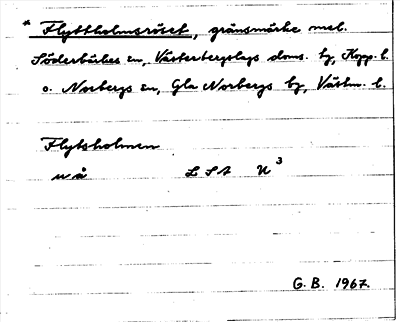 * Flyttholmsröset, gränsmärke mel.
Söderbärkes sn, Västerbergslags doms. hg, Kopp. l.
o. Norbergs sn, Gla Norbergs bg, Västm. l.
Flytsholmen
u å LSA U³
G. B. 1967.